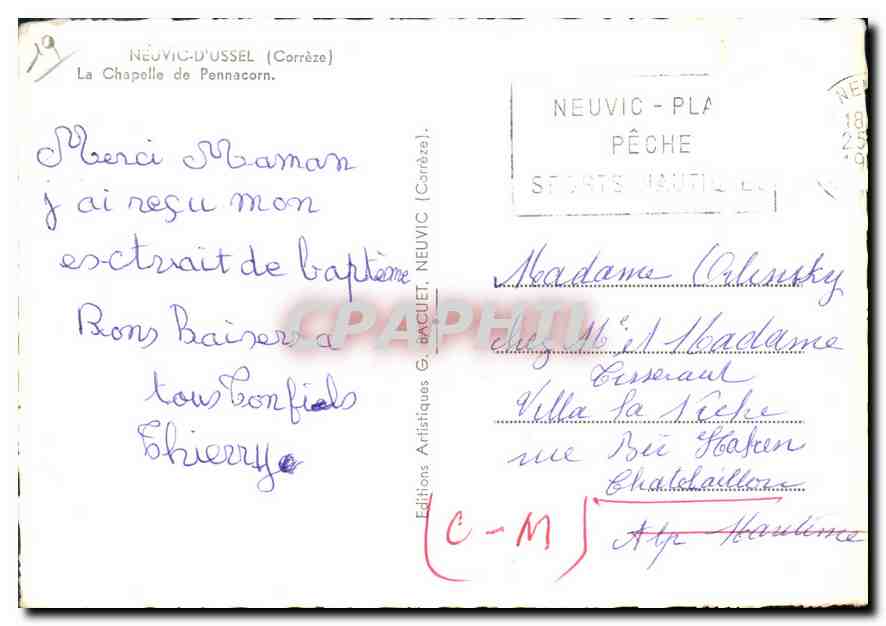 19
NEUVIC-D'USSEL (Corrèze)
La Chapelle de Pennacorn.
Merci Maman
j'ai reçu mon
esctrait de baptème
Bons Baisers a
tous ton fiels
Thierry
Editions Artistiques G. BACUET, NEUVIC (Corrèze).
CPAPHIL
NEUVIC - PLA
PÊCHE
SPORTS NAUTIQUES
NEU
18
25
19
Madame Orlinsky
chez Mr et Madame
Tisseraut
Villa la Niche
rue
Chatelaillon
Alp Maritime
(C-M)